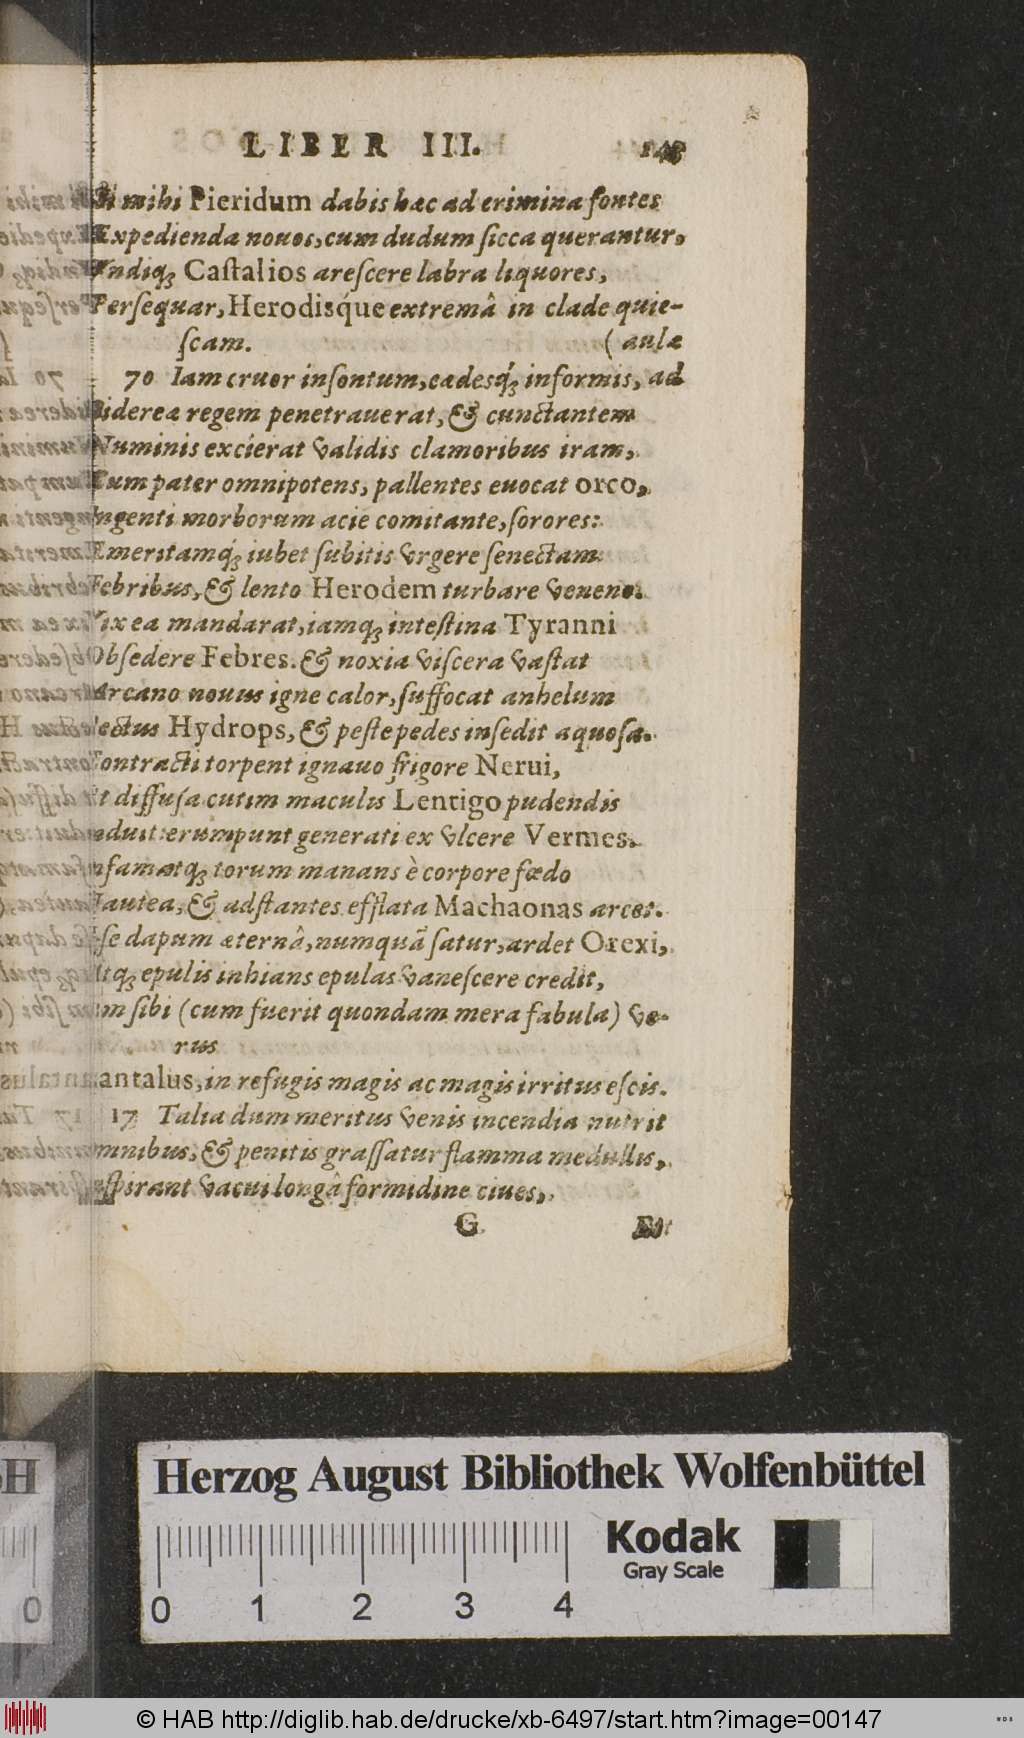 LIBER III.
Si mihi Pieridum dabis hæc ad crimina fontes
Expedienda nouos, cum dudum sicca querantur,
Vndiq; Castalios arescere labra liquores,
Persequar, Herodisq́ue extremâ in clade quie-
scam. (aulæ
70 Iam cruor insontum, cædesq́; informis, ad
Sidereæ regem penetrauerat, & cunctantem
Numinis excierat validis clamoribus iram,
Tum pater omnipotens, pallentes euocat orco,
Ingenti morborum acie comitante, sorores:
Emeritamq́; iubet subitis vrgere senectam
Febribus, & lento Herodem turbare veneno.
Vix ea mandarat, iamq; intestina Tyranni
Obsedere Febres. & noxia viscera vastat
Arcano nouus igne calor, suffocat anhelum
lectus Hydrops, & peste pedes insedit aquosa.
Contracti torpent ignauo frigore Nerui,
Et diffusa cutim maculis Lentigo pudendis
duit: erumpunt generati ex vlcere Vermes.
nfamatq; torum manans è corpore fœdo
Iautea, & adstantes efflata Machaonas arcet.
se dapum æternâ, numquã satur, ardet Orexi,
Atq; epulis inhians epulas vanescere credit,
m sibi (cum fuerit quondam mera fabula) ve-
rus
antalus, in refugis magis ac magis irritus escis.
17 Talia dum meritus venis incendia nutrit
mnibus, & penitis grassatur flamma medullis,
espirant vacui longâ formidine ciues,
G Et
Herzog August Bibliothek Wolfenbüttel
Kodak
Gray Scale
0 1 2 3 4
© HAB http://diglib.hab.de/drucke/xb-6497/start.htm?image=00147